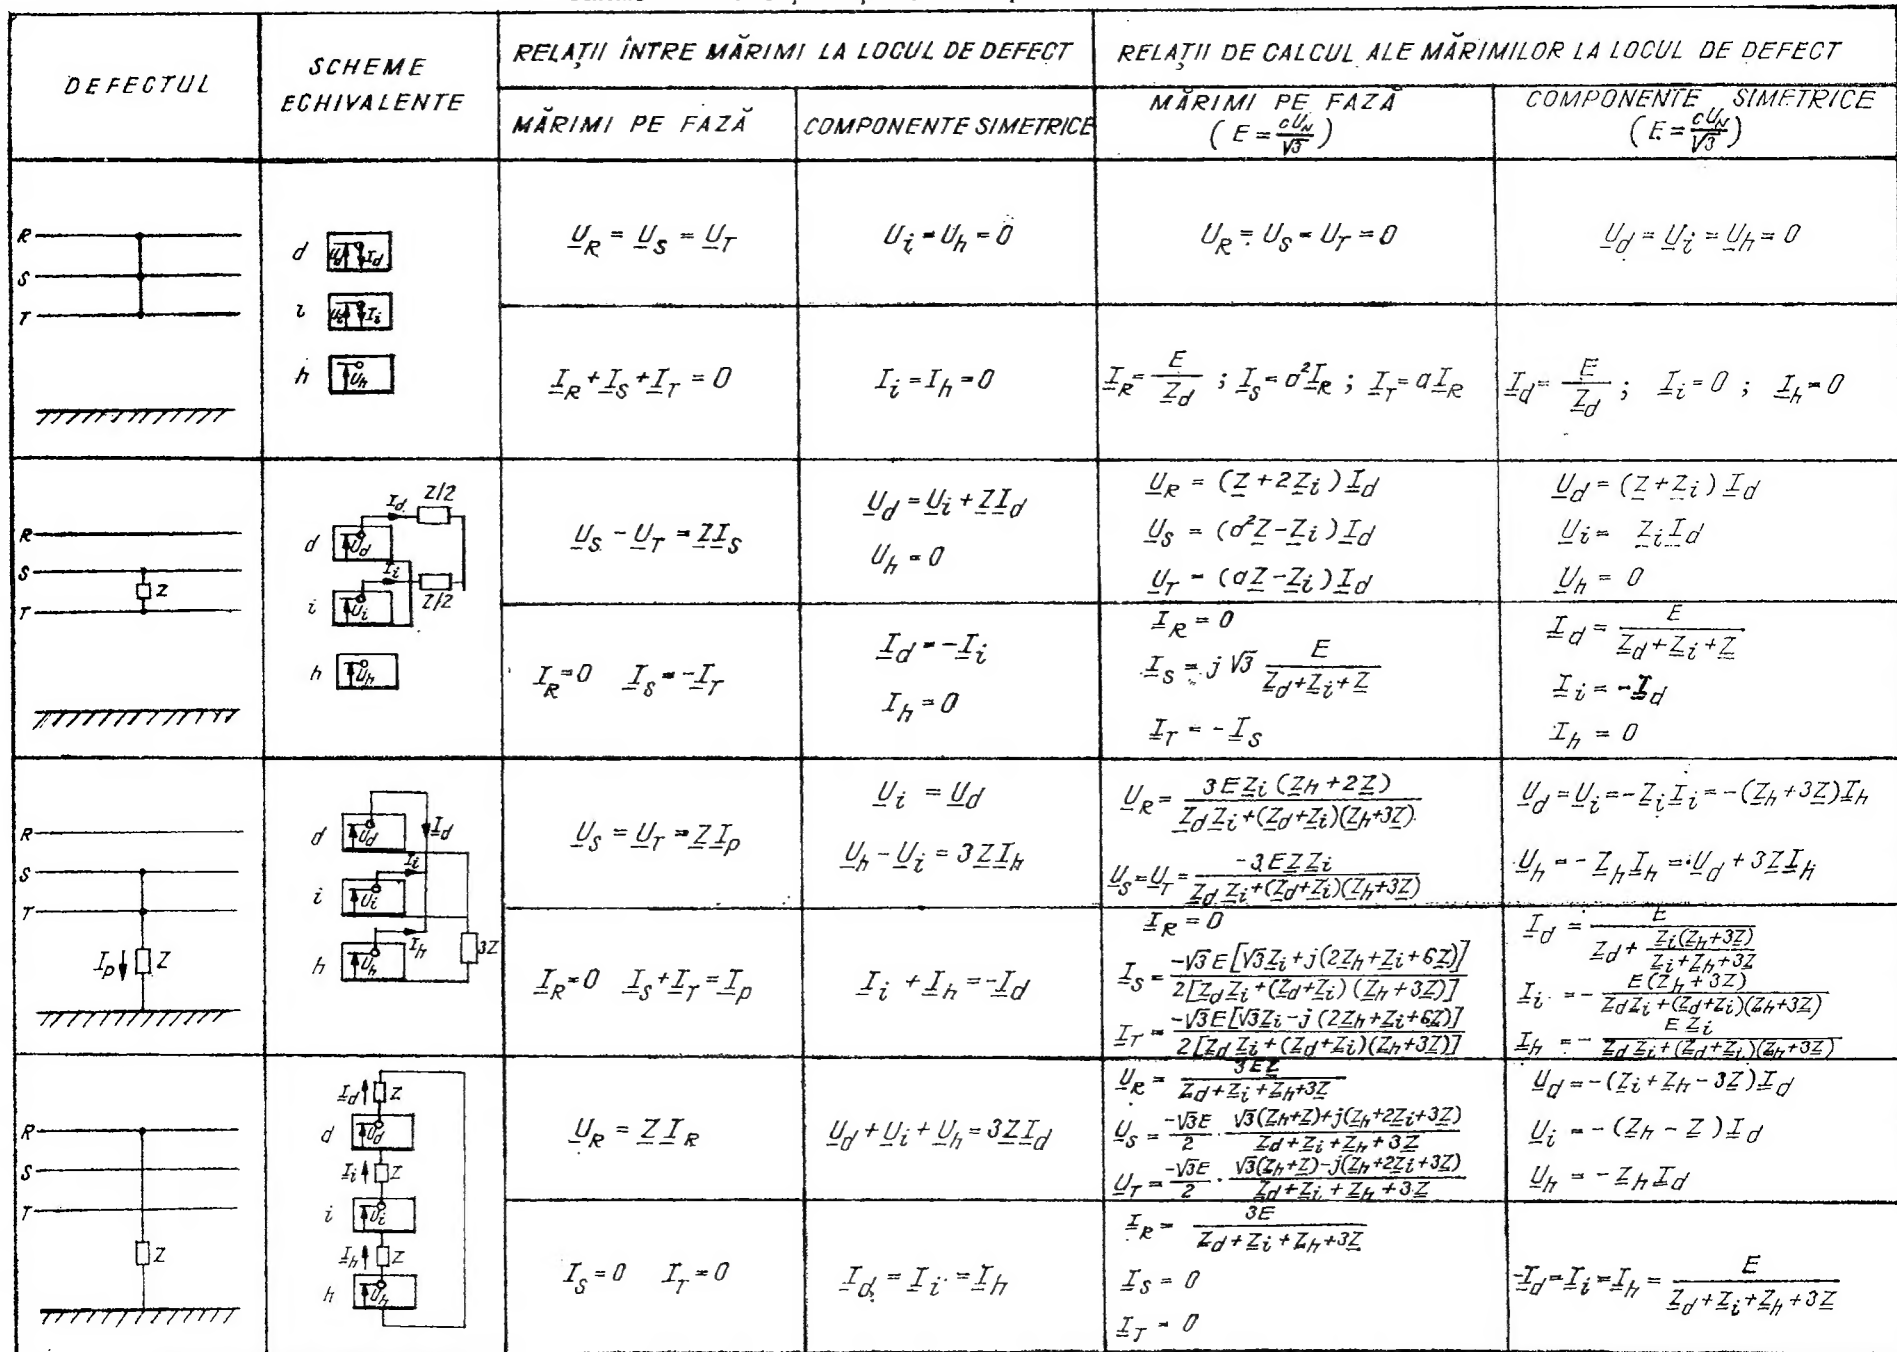 DEFECTUL
SCHEME
ECHIVALENTE
RELAȚII ÎNTRE MĂRIMI LA LOCUL DE DEFECT
RELAȚII DE CALCUL ALE MĂRIMILOR LA LOCUL DE DEFECT
MĂRIMI PE FAZĂ
COMPONENTE SIMETRICE
MĂRIMI PE FAZĂ
(E = cU_N/√3)
COMPONENTE SIMETRICE
(E = cU_N/√3)
R
S
T
d U_d I_d
i U_i I_i
h U_h
U_R = U_S = U_T
U_i = U_h = 0
U_R = U_S = U_T = 0
U_d = U_i = U_h = 0
I_R + I_S + I_T = 0
I_i = I_h = 0
I_R = E/Z_d ; I_S = a²I_R ; I_T = aI_R
I_d = E/Z_d ; I_i = 0 ; I_h = 0
R
S
Z
T
I_d Z/2
d U_d
I_i Z/2
i U_i
h U_h
U_S - U_T = ZI_S
U_d = U_i + ZI_d
U_h = 0
U_R = (Z + 2Z_i) I_d
U_S = (a²Z - Z_i) I_d
U_T = (aZ - Z_i) I_d
U_d = (Z + Z_i) I_d
U_i = Z_i I_d
U_h = 0
I_R = 0 I_S = -I_T
I_d = -I_i
I_h = 0
I_R = 0
I_S = j√3 E/(Z_d + Z_i + Z)
I_T = -I_S
I_d = E/(Z_d + Z_i + Z)
I_i = -I_d
I_h = 0
R
S
T
I_p Z
d U_d I_d
I_i
i U_i
I_h
h U_h 3Z
U_S = U_T = ZI_p
U_i = U_d
U_h - U_i = 3ZI_h
U_R = 3EZ_i(Z_h + 2Z)/(Z_dZ_i + (Z_d + Z_i)(Z_h + 3Z))
U_S = U_T = -3EZZ_i/(Z_dZ_i + (Z_d + Z_i)(Z_h + 3Z))
U_d = U_i = -Z_iI_i = -(Z_h + 3Z)I_h
U_h = -Z_hI_h = U_d + 3ZI_h
I_R = 0 I_S + I_T = I_p
I_i + I_h = -I_d
I_R = 0
I_S = -√3E[√3Z_i + j(2Z_h + Z_i + 6Z)]/2[Z_dZ_i + (Z_d + Z_i)(Z_h + 3Z)]
I_T = -√3E[√3Z_i - j(2Z_h + Z_i + 6Z)]/2[Z_dZ_i + (Z_d + Z_i)(Z_h + 3Z)]
I_d = E/(Z_d + Z_i(Z_h + 3Z)/(Z_i + Z_h + 3Z))
I_i = - E(Z_h + 3Z)/(Z_dZ_i + (Z_d + Z_i)(Z_h + 3Z))
I_h = - EZ_i/(Z_dZ_i + (Z_d + Z_i)(Z_h + 3Z))
R
S
T
Z
I_d Z
d U_d
I_i Z
i U_i
I_h Z
h U_h
U_R = ZI_R
U_d + U_i + U_h = 3ZI_d
U_R = 3EZ/(Z_d + Z_i + Z_h + 3Z)
U_S = -√3E/2 · (√3(Z_h + Z) + j(Z_h + 2Z_i + 3Z))/(Z_d + Z_i + Z_h + 3Z)
U_T = -√3E/2 · (√3(Z_h + Z) - j(Z_h + 2Z_i + 3Z))/(Z_d + Z_i + Z_h + 3Z)
U_d = -(Z_i + Z_h - 3Z)I_d
U_i = -(Z_h - Z)I_d
U_h = -Z_hI_d
I_S = 0 I_T = 0
I_d = I_i = I_h
I_R = 3E/(Z_d + Z_i + Z_h + 3Z)
I_S = 0
I_T = 0
-I_d = I_i = I_h = E/(Z_d + Z_i + Z_h + 3Z)